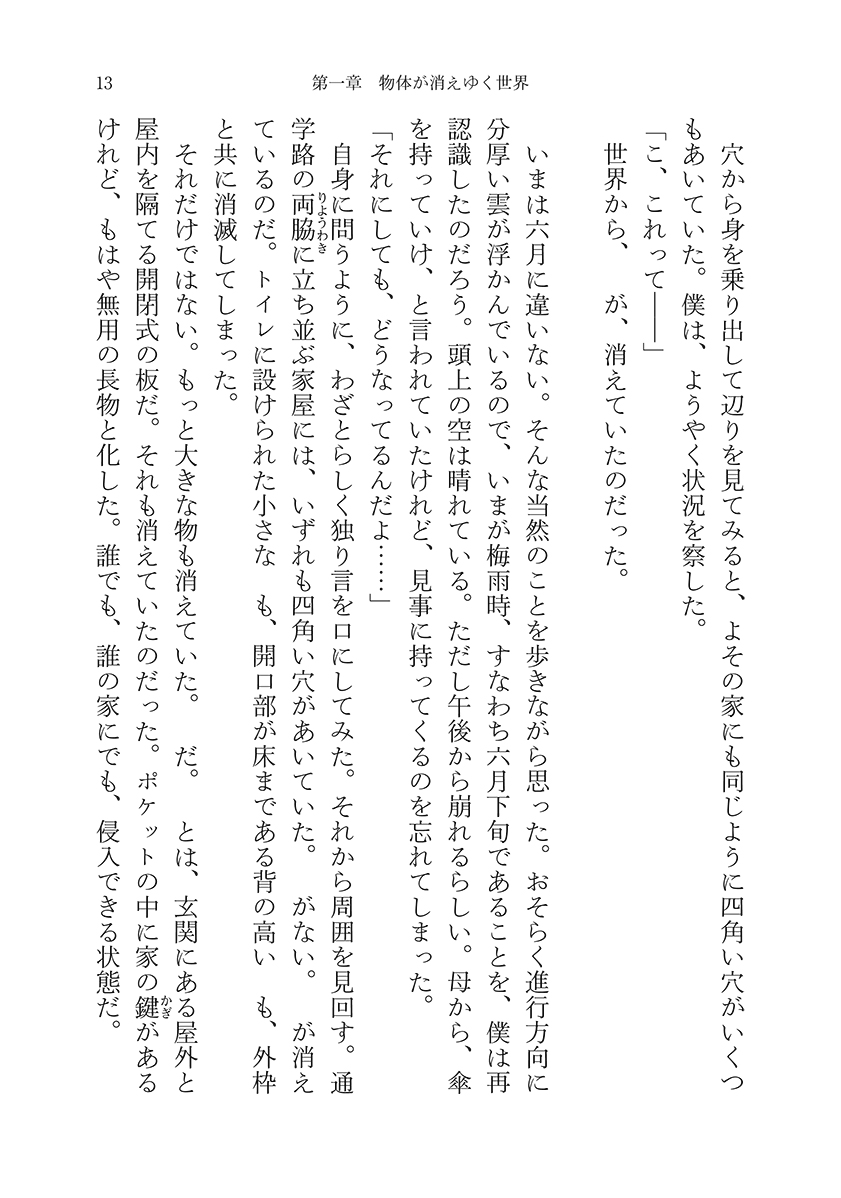 13
第一章　物体が消えゆく世界
　穴から身を乗り出して辺りを見てみると、よその家にも同じように四角い穴がいくつ
もあいていた。僕は、ようやく状況を察した。
「こ、これって――」
　世界から、　が、消えていたのだった。
　いまは六月に違いない。そんな当然のことを歩きながら思った。おそらく進行方向に
分厚い雲が浮かんでいるので、いまが梅雨時、すなわち六月下旬であることを、僕は再
認識したのだろう。頭上の空は晴れている。ただし午後から崩れるらしい。母から、傘
を持っていけ、と言われていたけれど、見事に持ってくるのを忘れてしまった。
「それにしても、どうなってるんだよ……」
　自身に問うように、わざとらしく独り言を口にしてみた。それから周囲を見回す。通
学路の両脇に立ち並ぶ家屋には、いずれも四角い穴があいていた。　がない。　が消え
りようわき
ているのだ。トイレに設けられた小さな　も、開口部が床まである背の高い　も、外枠
と共に消滅してしまった。
　それだけではない。もっと大きな物も消えていた。　だ。　とは、玄関にある屋外と
屋内を隔てる開閉式の板だ。それも消えていたのだった。ポケットの中に家の鍵がある
かぎ
けれど、もはや無用の長物と化した。誰でも、誰の家にでも、侵入できる状態だ。